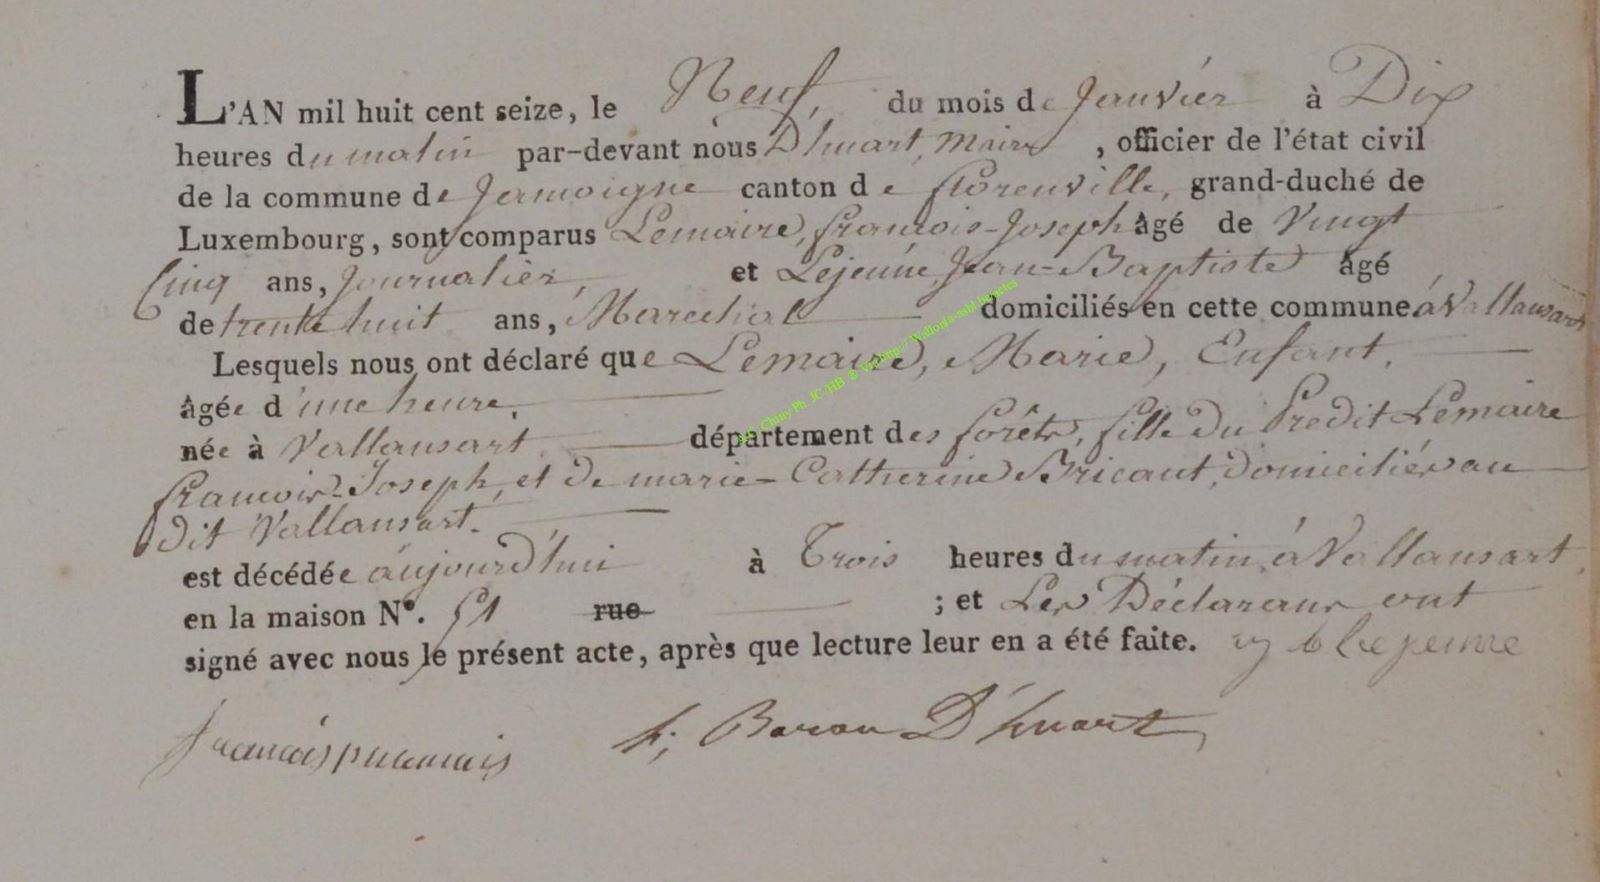 L'AN mil huit cent seize, le Neuf, du mois de Janvier à Dix
heures du matin par-devant nous D'huart, Maire, officier de l'état civil
de la commune de Jamoigne canton de florenville, grand-duché de
Luxembourg, sont comparus Lemaire, françois-Joseph âgé de Vingt
Cinq ans, Journalier, et Lejeune, Jean-Baptiste âgé
de trente huit ans, Marechal domiciliés en cette commune à Vallansart
Lesquels nous ont déclaré que Lemaire, Marie, Enfant,
âgée d'une heure,
née à Vallansart département des forêts, fille du Predit Lemaire
françois-Joseph, et de marie-Catherine Bricaut, domiciliés au
dit Vallansart.
est décédée aujourd'hui à Trois heures du matin, à Vallansart,
en la maison N°. 51 rue ; et Les Déclarans ont
signé avec nous le présent acte, après que lecture leur en a été faite. lejeune
françois Baron D'huart